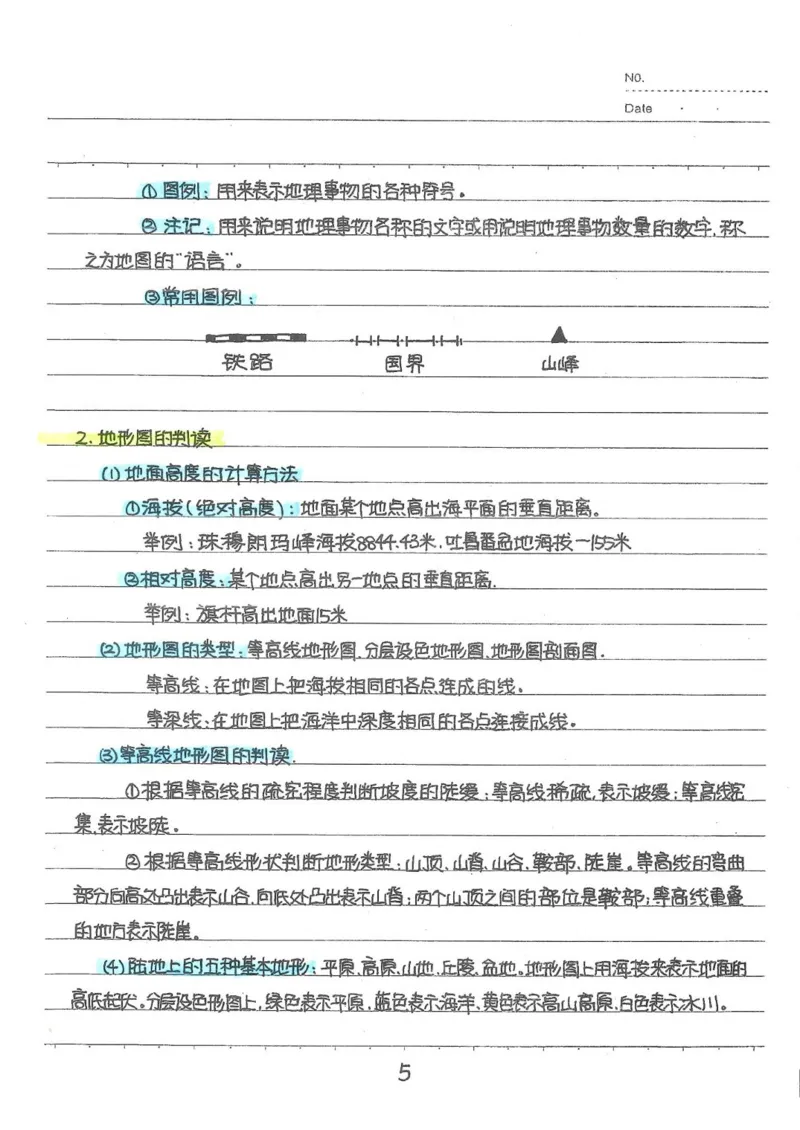 NO.
Date
①图例：用来表示地理事物的各种符号。
②注记：用来说明地理事物名称的文字或用说明地理事物数量的数字，称
之为地图的“语言”。
③常用图例：
铁路 国界 山峰
2.地形图的判读
(1)地面高度的计算方法
①海拔(绝对高度)：地面某个地点高出海平面的垂直距离。
举例：珠穆朗玛峰海拔8844.43米，吐鲁番盆地海拔-155米
②相对高度：某个地点高出另一地点的垂直距离.
举例：旗杆高出地面15米
(2)地形图的类型：等高线地形图、分层设色地形图、地形图剖面图.
等高线：在地图上把海拔相同的各点连成的线。
等深线：在地图上把海洋中深度相同的各点连接成线。
(3)等高线地形图的判读.
①根据等高线的疏密程度判断坡度的陡缓；等高线稀疏，表示坡缓；等高线密
集，表示坡陡。
②根据等高线形状判断地形类型：山顶、山脊、山谷、鞍部、陡崖。等高线的弯曲
部分向高处凸出表示山谷，向低处凸出表示山脊；两个山顶之间的部位是鞍部；等高线重叠
的地方表示陡崖。
(4)陆地上的五种基本地形：平原、高原、山地、丘陵、盆地。地形图上用海拔来表示地面的
高低起伏。分层设色形图上，绿色表示平原、蓝色表示海洋、黄色表示高山高原、白色表示冰川。
5